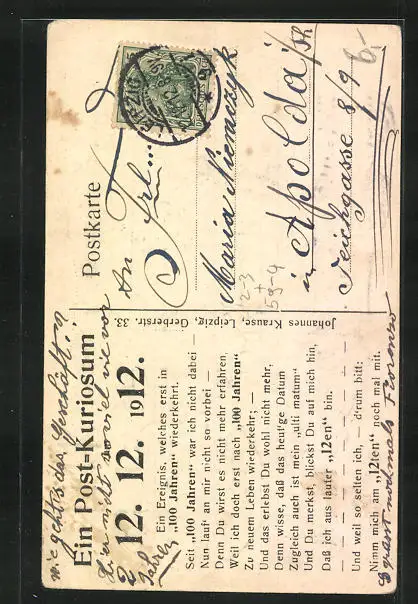 wie geht's das Geschäft?
Ein Post-Kuriosum
hier nicht so viel wie vor
2 12. 12. 1912.
Jahren
Ein Ereignis, welches erst in
„100 Jahren" wiederkehrt.
Seit „100 Jahren" war ich nicht dabei —
Nun lauf' an mir nicht so vorbei —
Denn Du wirst es nicht mehr erfahren,
Weil ich doch erst nach „100 Jahren"
Zu neuem Leben wiederkehr; —
Und das erlebst Du wohl nicht mehr,
Denn wisse, daß das heut'ge Datum
Zugleich auch ist mein „ulti matum"
Und Du merkst, blickst Du auf mich hin,
Daß ich aus lauter „12en" bin.
— — — — — — — — — —
Und weil so selten ich, — d'rum bitt:
Nimm mich am „12ten" noch mal mit.
Johannes Krause, Leipzig, Gerberstr. 33.
Postkarte
An Frl.
Maria Niemczyk
in Apolda i/Th.
Teichgasse 8/9
LEIPZIG
6,-